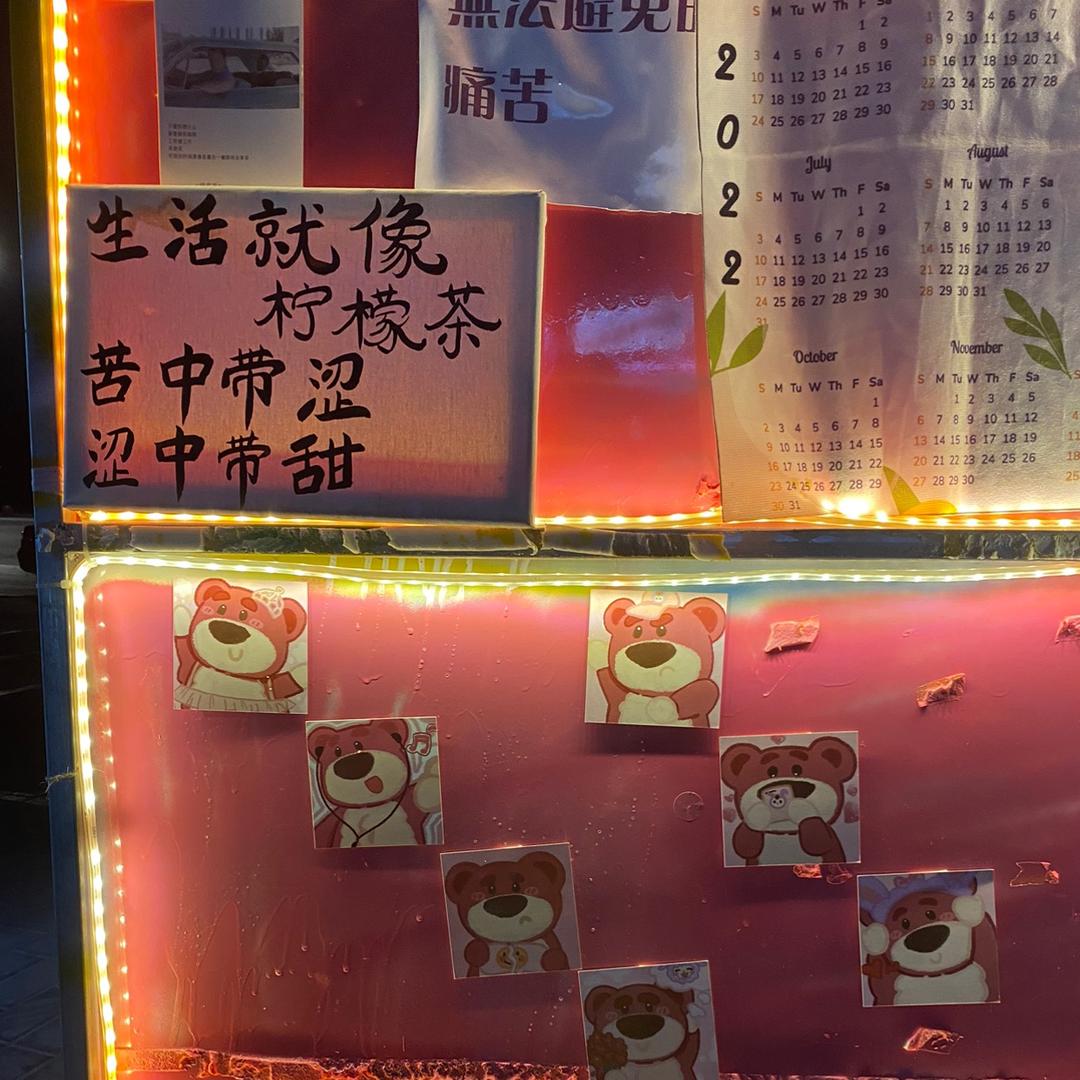 無法避免的
痛苦
生活就像
柠檬茶
苦中带涩
涩中带甜
2
0
2
2
S M Tu W Th F Sa
1 2
3 4 5 6 7 8 9
10 11 12 13 14 15 16
17 18 19 20 21 22 23
24 25 26 27 28 29 30
1 2 3 4 5 6 7
8 9 10 11 12 13 14
15 16 17 18 19 20 21
22 23 24 25 26 27 28
29 30 31
July
S M Tu W Th F Sa
1 2
3 4 5 6 7 8 9
10 11 12 13 14 15 16
17 18 19 20 21 22 23
24 25 26 27 28 29 30
31
August
S M Tu W Th F Sa
1 2 3 4 5 6
7 8 9 10 11 12 13
14 15 16 17 18 19 20
21 22 23 24 25 26 27
28 29 30 31
October
S M Tu W Th F Sa
1
2 3 4 5 6 7 8
9 10 11 12 13 14 15
16 17 18 19 20 21 22
23 24 25 26 27 28 29
30 31
November
S M Tu W Th F Sa
1 2 3 4 5
6 7 8 9 10 11 12
13 14 15 16 17 18 19
20 21 22 23 24 25 26
27 28 29 30